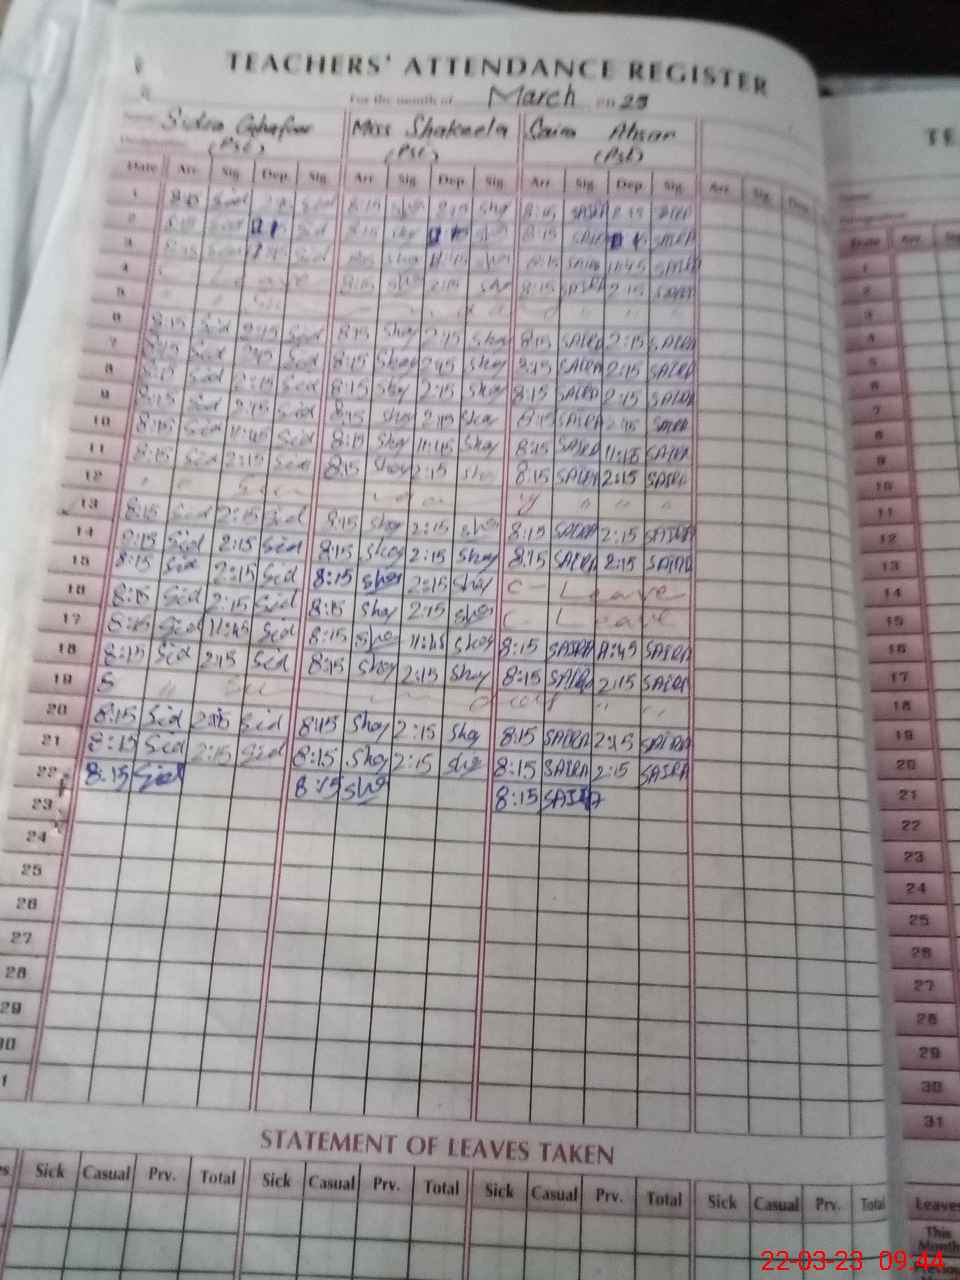 TEACHERS' ATTENDANCE REGISTER
For the month of March 23
Sidra Ghafoor Miss Shakeela Saira Ahsan
(Pst) (Pst) (Pst)
Date Arr. Sig. Dep. Sig. Arr. Sig. Dep. Sig. Arr. Sig. Dep. Sig. Arr. Sig. Dep.
1 8:15 Sid Sid 8:15 Sha 2:15 Sha 8:15 SAIRA 2:15 SAIRA
2 8:15 Sid Sid 8:15 Sha Sha 8:15 SAIRA SAIRA
3 Sid 8:15 Sha Sha SAIRA 11:45 SAIRA
4 Leave 8:15 Sha 2:15 Sha 8:15 SAIRA 2:15 SAIRA
5 Sunday
6 8:15 Sid 2:15 Sid 8:15 Sha 2:15 Sha 8:15 SAIRA 2:15 SAIRA
7 8:15 Sid 2:15 Sid 8:15 Sha 2:15 Sha 8:15 SAIRA 2:15 SAIRA
8 8:15 Sid 2:15 Sid 8:15 Sha 2:15 Sha 8:15 SAIRA 2:15 SAIRA
9 8:15 Sid 2:15 Sid 8:15 Sha 2:15 Sha 8:15 SAIRA 2:15 SAIRA
10 8:15 Sid 11:45 Sid 8:15 Sha 11:45 Sha 8:15 SAIRA 11:45 SAIRA
11 8:15 Sid 2:15 Sid 8:15 Sha 2:15 Sha 8:15 SAIRA 2:15 SAIRA
12 " " Sunday " " "
13 8:15 Sid 2:15 Sid 8:15 Sha 2:15 Sha 8:15 SAIRA 2:15 SAIRA
14 8:15 Sid 2:15 Sid 8:15 Sha 2:15 Sha 8:15 SAIRA 2:15 SAIRA
15 8:15 Sid 2:15 Sid 8:15 Sha 2:15 Sha C- Leave
16 8:15 Sid 2:15 Sid 8:15 Sha 2:15 Sha C- Leave
17 8:15 Sid 11:45 Sid 8:15 Sha 11:45 Sha 8:15 SAIRA 11:45 SAIRA
18 8:15 Sid 2:15 Sid 8:15 Sha 2:15 Sha 8:15 SAIRA 2:15 SAIRA
19 S " Sunday " "
20 8:15 Sid 2:15 Sid 8:15 Sha 2:15 Sha 8:15 SAIRA 2:15 SAIRA
21 8:15 Sid 2:15 Sid 8:15 Sha 2:15 Sha 8:15 SAIRA 2:15 SAIRA
22 8:15 Sid 8:15 Sha 8:15 SAIRA
23
24
25
26
27
28
29
30
1
STATEMENT OF LEAVES TAKEN
Sick Casual Prv. Total Sick Casual Prv. Total Sick Casual Prv. Total Sick Casual Prv. Total
TE
Date Arr.
1
2
3
4
5
6
7
8
9
10
11
12
13
14
15
16
17
18
19
20
21
22
23
24
25
26
27
28
29
30
31
Leaves
This
Month
22-03-23 09:44